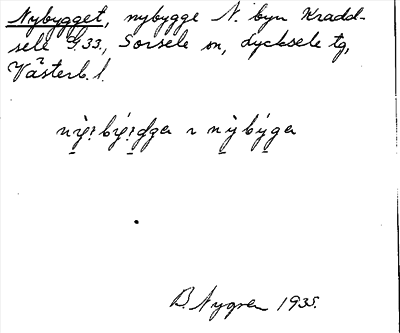 Nybygget, nybygge N. byn Kradd-
sele 933., Sorsele sn, Lycksele tg,
Västerb. l.
nỳ̱:bý̱:dgɐ ~ nỳ̱bý̱gɐ
B. Nygren 1935.